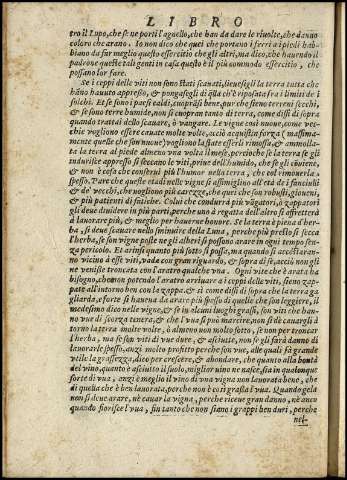 LIBRO
tro il Lupo, che se ne porti l'agnello, che han da dare le riuolte, che danno
coloro che arano. Io non dico che quei che portano i ferri a i piedi hab-
biano da far meglio questo essercitio che gli altri, ma dico, che hauendo il
padrone queste tali genti in casa questo è il più commodo essercitio, che
possano lor fare.
Se i ceppi delle viti non sono stati scauati, lieuesegli la terra tutta che
hãno hauuto appresso, & pongasegli di stà ch'è riposata fra i limiti de i
solchi. Et se sono i paesi caldi, cuoprãsi bene, pur che sieno terreni secchi,
& se sono terre humide, non si cuopran tanto di terra, come dissi di sopra
quando trattai dello scauare, ò vangare. Le vigne cosi nuoue, come vec-
chie vogliono essere cauate molte volte, acciò acquistin forza (massima-
mente quelle che son nuoue) vogliono la state esserli rimossa, & ammolla-
ta la terra al piede almeno vna volta il mese, percioche se la terra se gli
indurisce appresso si seccano le viti, priue dell'humido, che se gli conuiene,
& non è cosa che conserui più l'humor nella terra, che col rimouerla
spesso. Pare che queste tai di nelle vigne si assimiglino all'età de i fanciulli
& de' vecchi, che vogliono più carezze, che quei che son robusti, gioueni,
& più patienti di fatiche. Colui che condurrà più vãgatori, ò zappatori
gli deue diuidere in più parti, perche vno à regatta dell'altro si affretterà
à lauorare più, & meglio per hauerne honore. Se la terra è piena d'her-
ba, si deue cauare nello sminuire della Luna, perche più presto si secca
l'herba, se son vigne poste ne gli alberi si possono arare in ogni tempo sen-
za pericolo. Et arinsi quanto più sotto si possa, ma quando si accosteran-
no vicino à esse viti, vada con gran riguardo, & sopra di se, acciò non gli
ne venisse troncata con l'aratro qualche vna. Ogni vite che è arata ha
bisogno, che non potendo l'aratro arriuare a i ceppi delle viti, sieno zap-
pate all'intorno ben con la zappa. & si come dissi di sopra che la terra ga
gliarda, e forte si haueua da arare più spesso di quelle che son leggiere, il
medesimo dico nelle vigne, & se in alcuni luoghi grassi, son viti che han-
no vue di scorza tenera, & che l'vua si può marcire, non se dè cauargli à
torno la terra molte volte, ò almeno non molto sotto, se non per troncar
l'herba, ma se son viti di vue dure, & asciutte, non se gli farà danno di
lauorarle spesso, anzi molto profitto perche son vue, alle quali fà grande
vtile la grassezza, dico per crescere, & abondare, che quanto alla bontà
del vino, quanto è asciutto il suolo, miglior vino ne nasce, sia in qualunque
sorte di vua, anzi è meglio il vino di vna vigna non lauorata bene, che
di quella che è ben lauorata, perche non è così grassa l'vua. Quando gela
non si deue arare, nè cauar la vigna, perche riceue gran danno, nè anco
quando fiorisce l'vua, fin tanto che non siano i grappi ben duri, perche
nel-